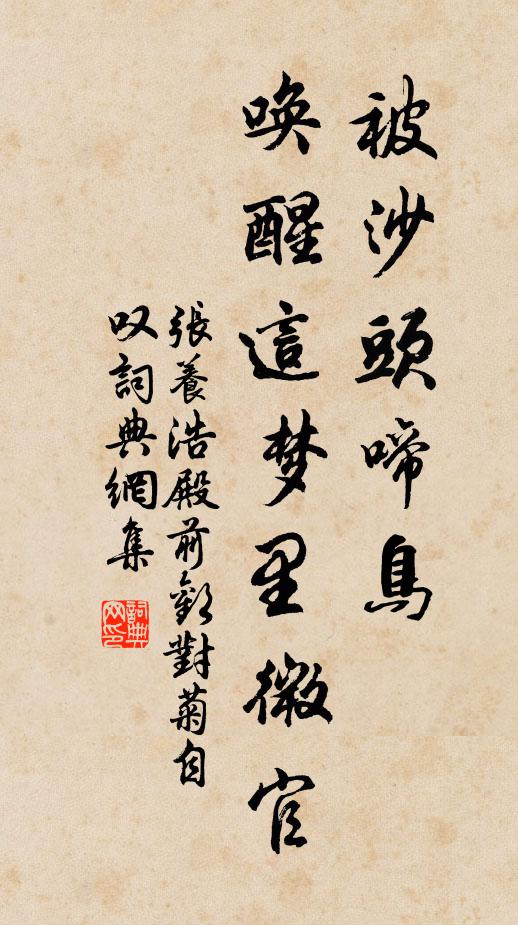 被沙頭啼鳥
喚醒這梦里微官
張養浩殿前歡對菊自
叹詞典網集
詞典
网印